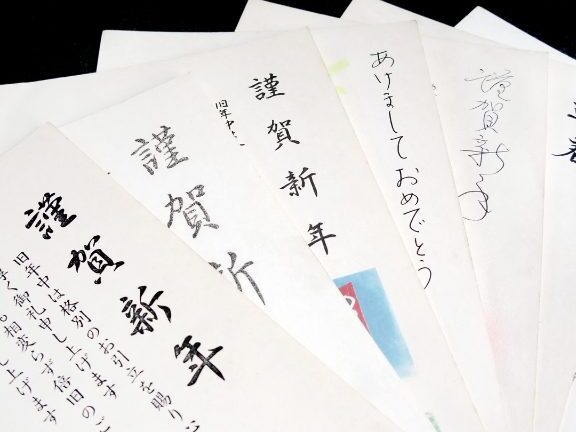 謹賀新年
旧年中は格別のお引立を賜り心
く御礼申し上げます
も相変らず倍旧のご
し上げます
謹賀新
謹賀新年
旧年中
あけましておめでとう
謹賀新年
春